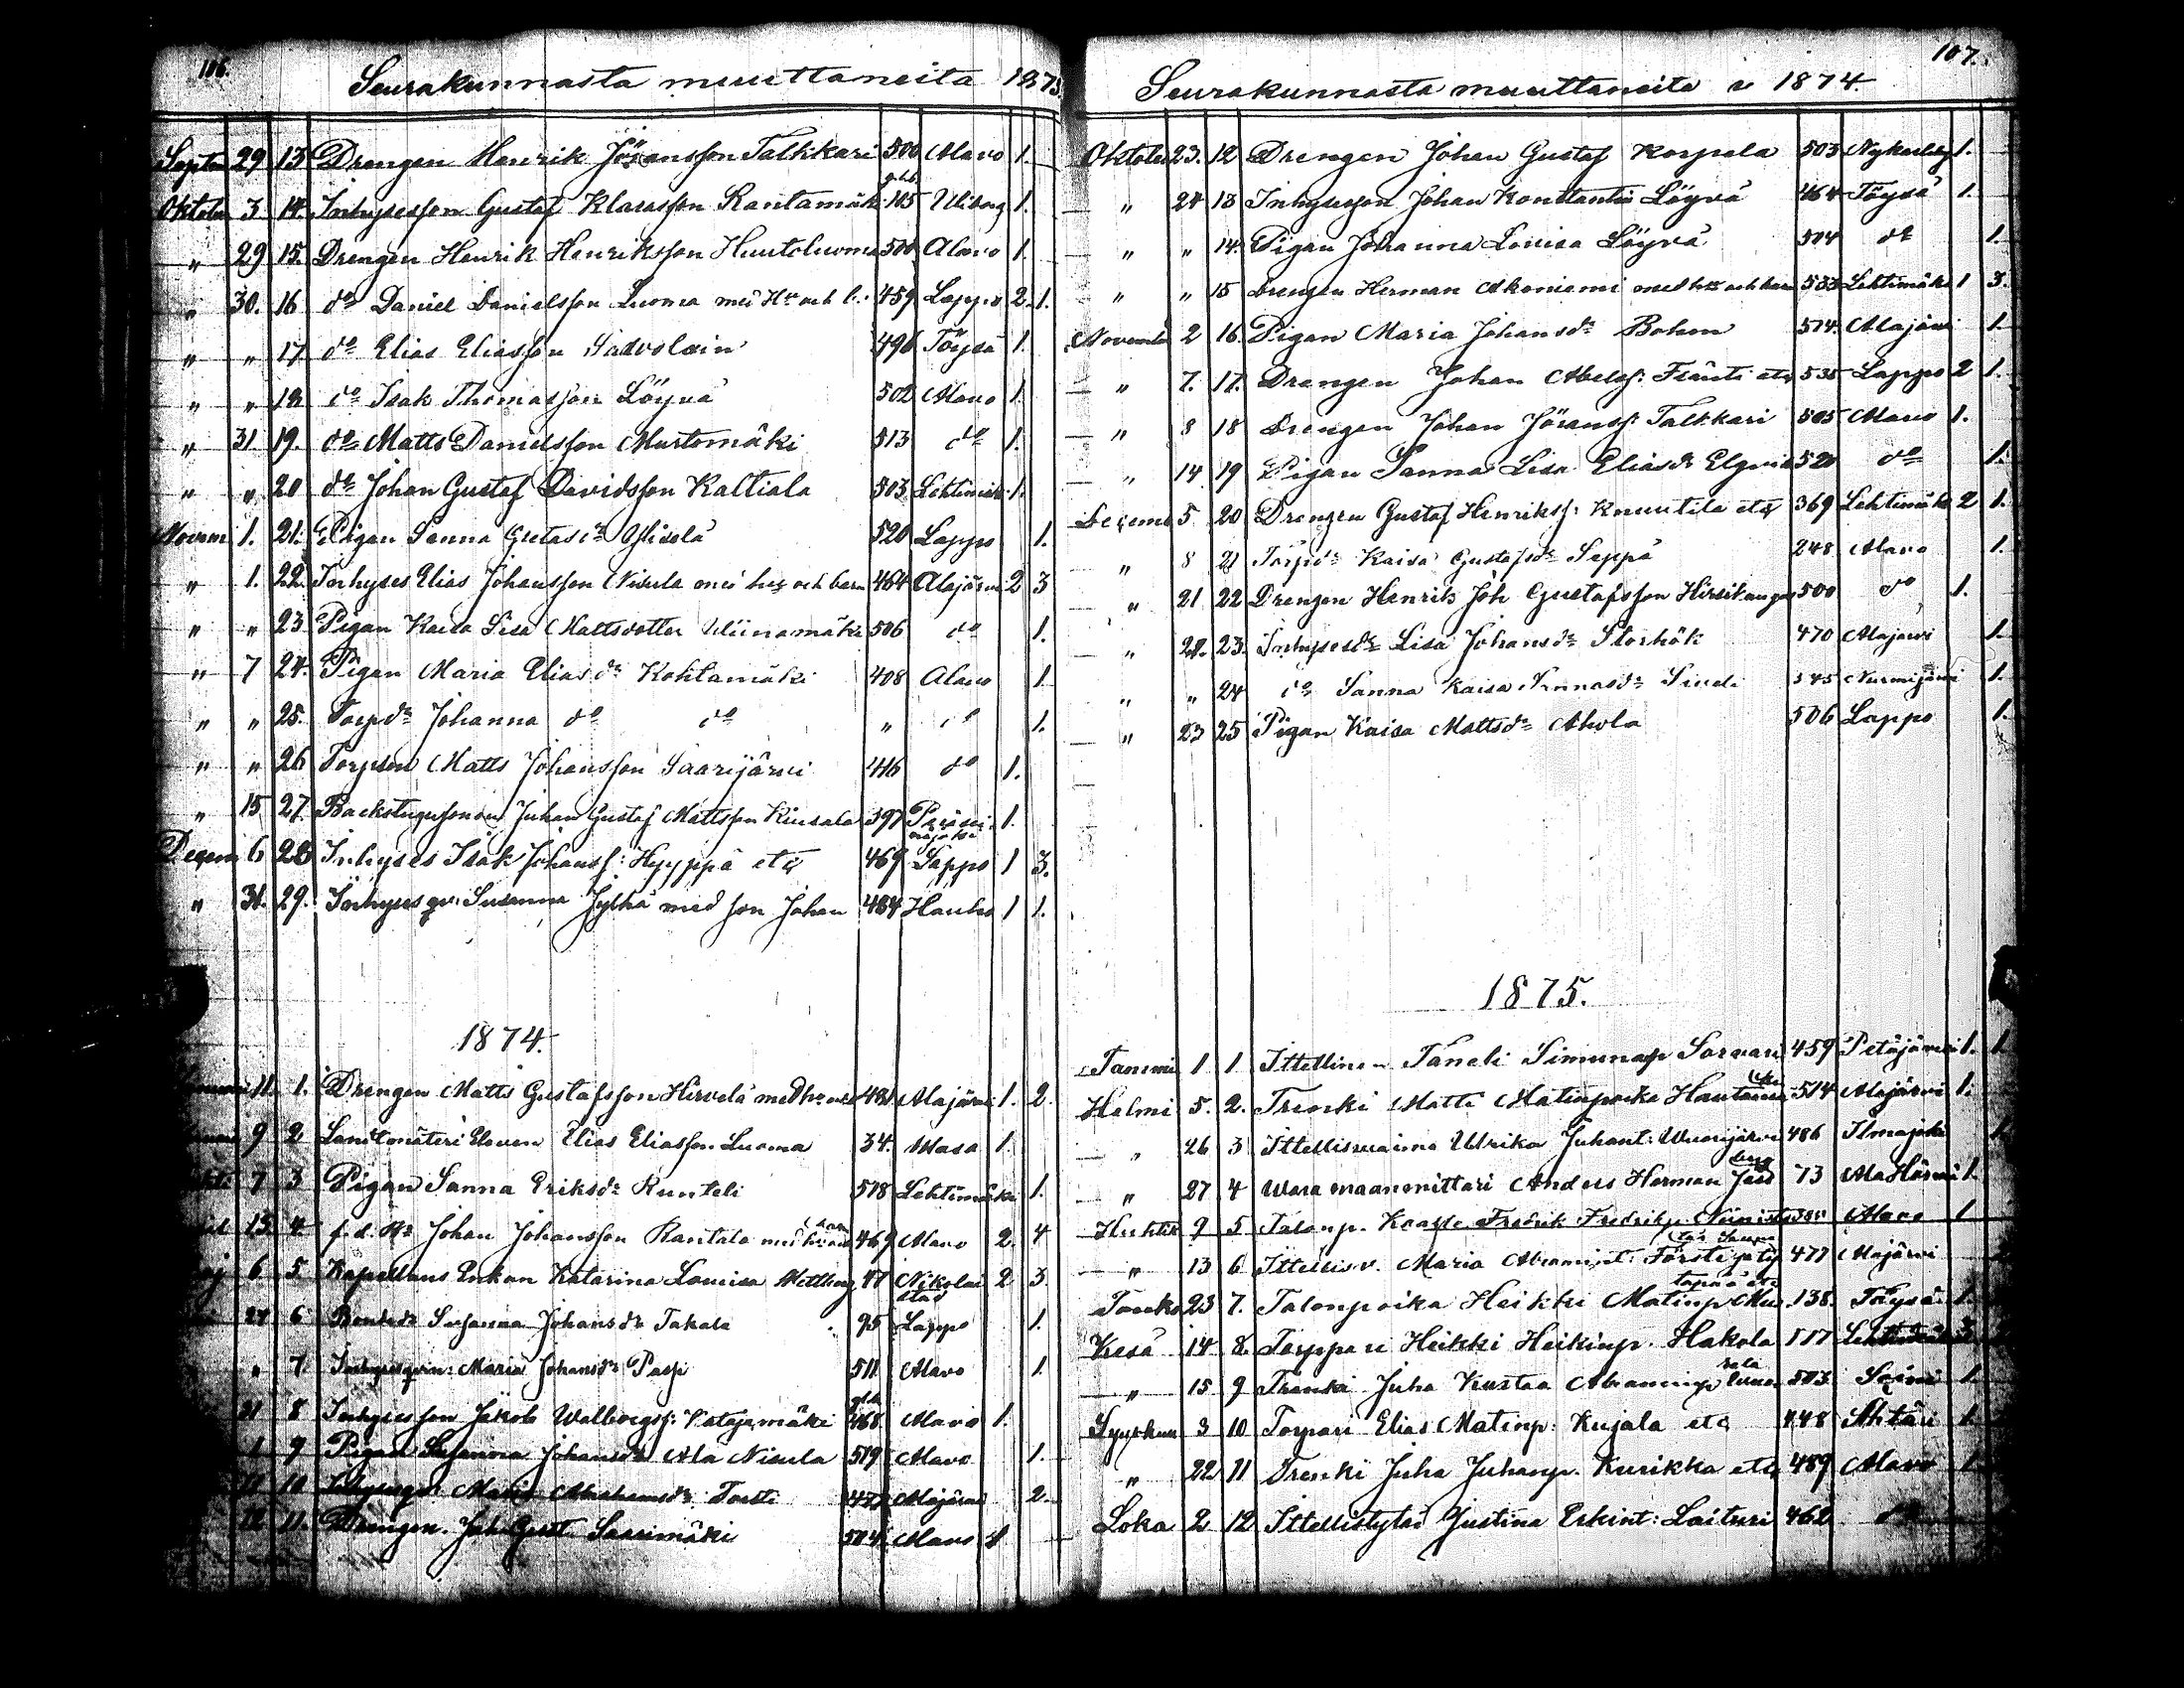 106.
Seurakunnasta muuttaneita 1873.
Septem 29 13 Drengen Henrik Jöransson Talkkari 500 Alavo 1.
Oktober 3. 14. Inhysesson Gustaf Klarasson Rantamäki 105 Uleåborg 1.
" 29 15. Drengen Henrik Henriksson Huutoluoma 500 Alavo 1.
" 30. 16 do Daniel Danielsson Luoma med Hu och b. 459 Lappo 2. 1.
" " 17 do Elias Eliasson 496 Töysä 1.
" " 18 do Isak Thomasson Löyvä 502 Alavo 1.
" 31. 19. do Matts Danielsson Mustomäki 513 do 1.
" " 20 do Johan Gustaf Davidsson Kaltiala 503 Lehtimäki 1.
Novem 1. 21. Pigan Sanna Gretasdr Yliselä 520 Lappo 1.
" 1. 22. Inhyses Elias Johansson Nisula med hu och barn 464 Alajärvi 2 3
" " 23 Pigan Kaisa Lisa Mattsdotter Viinamäki 506 do 1.
" 7 24. Pigan Maria Eliasdr Kohtamäki 408 Alavo 1
" " 25. Torpdr Johanna do do " do 1.
" " 26 Torpson Matts Johansson Saarijärvi 416 do 1.
" 15 27. Backstugusonen Juhan Gustaf Mattsson Kiusala 397 1.
Decem 6 28 Inhyses Isak Johanss: Hyyppä etc 469 Lappo 1 3.
" 31. 29. Inhyses qv. Susanna Jylhä med son Johan 484 Hauho 1 1.
1874.
11. 1. Drengen Matts Gustafsson Hirvelä med hu och 481 Alajärvi 1. 2.
9 2 Landtmäteri Eleven Elias Eliasson Luoma 34. Wasa 1.
7 3 Pigan Sanna Eriksdr Runteli 518 Lehtimäki 1.
13. 4 f.d. Johan Johansson Rantala med hu och barn 469 Alavo 2. 4
6 5. Kapellans Enkan Katarina Lovisa 47 Nikolaistad 2 3.
24 6 Bondedr Susanna Johansdr Takala 95 Lappo 1.
" 7. Inhysesqvin: Maria Johansdr 511 Alavo 1.
21 8 Inhysesson Jakob Walborgss: Katajamäki 468 Alavo 1.
1 9 Pigan Susanna Johansdr Ala Nisula 519 Alavo 1.
10 Maria Abrahamsdr Försti 477 Alajärvi 2.
12 11. Drengen Joh. Gust. Saarimäki 504 Alavo 1
107.
Seurakunnasta muuttaneita v 1874.
Oktober 23. 12 Drengen Johan Gustaf Korpela 503 Nykarleby 1.
" 24 13 Inhysesson Johan Konstantin Löyvä 464 Töysä 1.
" " 14. Pigan Johanna Lovisa Löyvä 514 do 1.
" " 15 Drengen Herman Akoniemi med hu och barn 533 Lehtimäki 1 3.
November 2 16. Pigan Maria Johansdr Bohm 514. Alajärvi 1.
" 7. 17. Drengen Johan Abelss: Fränti etc 535 Lappo 2 1.
" 8 18 Drengen Johan Jöranss: Talkkari 505 Alavo 1.
" 14 19 Pigan Sanna Lisa Eliasdr 520 do 1.
Decem 5 20 Drengen Gustaf Henrikss: Knuutila etc 369 Lehtimäki 2 1.
" 8 21 Torpdr Kaisa Gustafsdr Seppä 248 Alavo 1.
" 21 22 Drengen Henrik Joh Gustafsson Hirsikangas 500 do 1.
" 22. 23. Inhysesdr Lisa Johansdr Storhök 470 Alajärvi 1.
" " 24 do Sanna Kaisa 345 Nurmijärvi 1.
" 23 25 Pigan Kaisa Mattsdr Ahola 506 Lappo 1.
1875.
Tammi 1 1 Ittellinen Taneli Simunap Sorvari 459 Petäjävesi 1. 1
Helmi 5. 2. Trenki Matti Matinpoika Hautamäki 514 Alajärvi 1.
" 26 3 Ittellisvaimo Ulrika Juhant: Wuorijärvi 486 Ilmajoki 1
" 27 4 Wara maanmittari Anders Herman 73 Ala Härmä 1.
Huhti 9 5 Talonp. Kaappo Fredrik Fredrikp. Niinistö Alavo 1
" 13 6 Ittellisv. Maria Abramint: Försti ja tytär Sanna 477 Alajärvi
Touko 23 7. Talonpoika Heikki Matinp Mustapää etc 138. Töysä 1.
Kesä 14 8. Torppari Heikki Heikinp. Hakola 117 Lehtimäki 3
" 15 9 Trenki Juha Kustaa Abraminp 503 Soini 1.
Syyskuu 3 10 Torpari Elias Matinp: Kujala etc 448 Ähtäri 1.
" 22 11 Trenki Juha Juhanp. Kurikka etc 489 Alavo 1
Loka 2 12 Ittellistytär Justina Erkint: Laituri 462 do